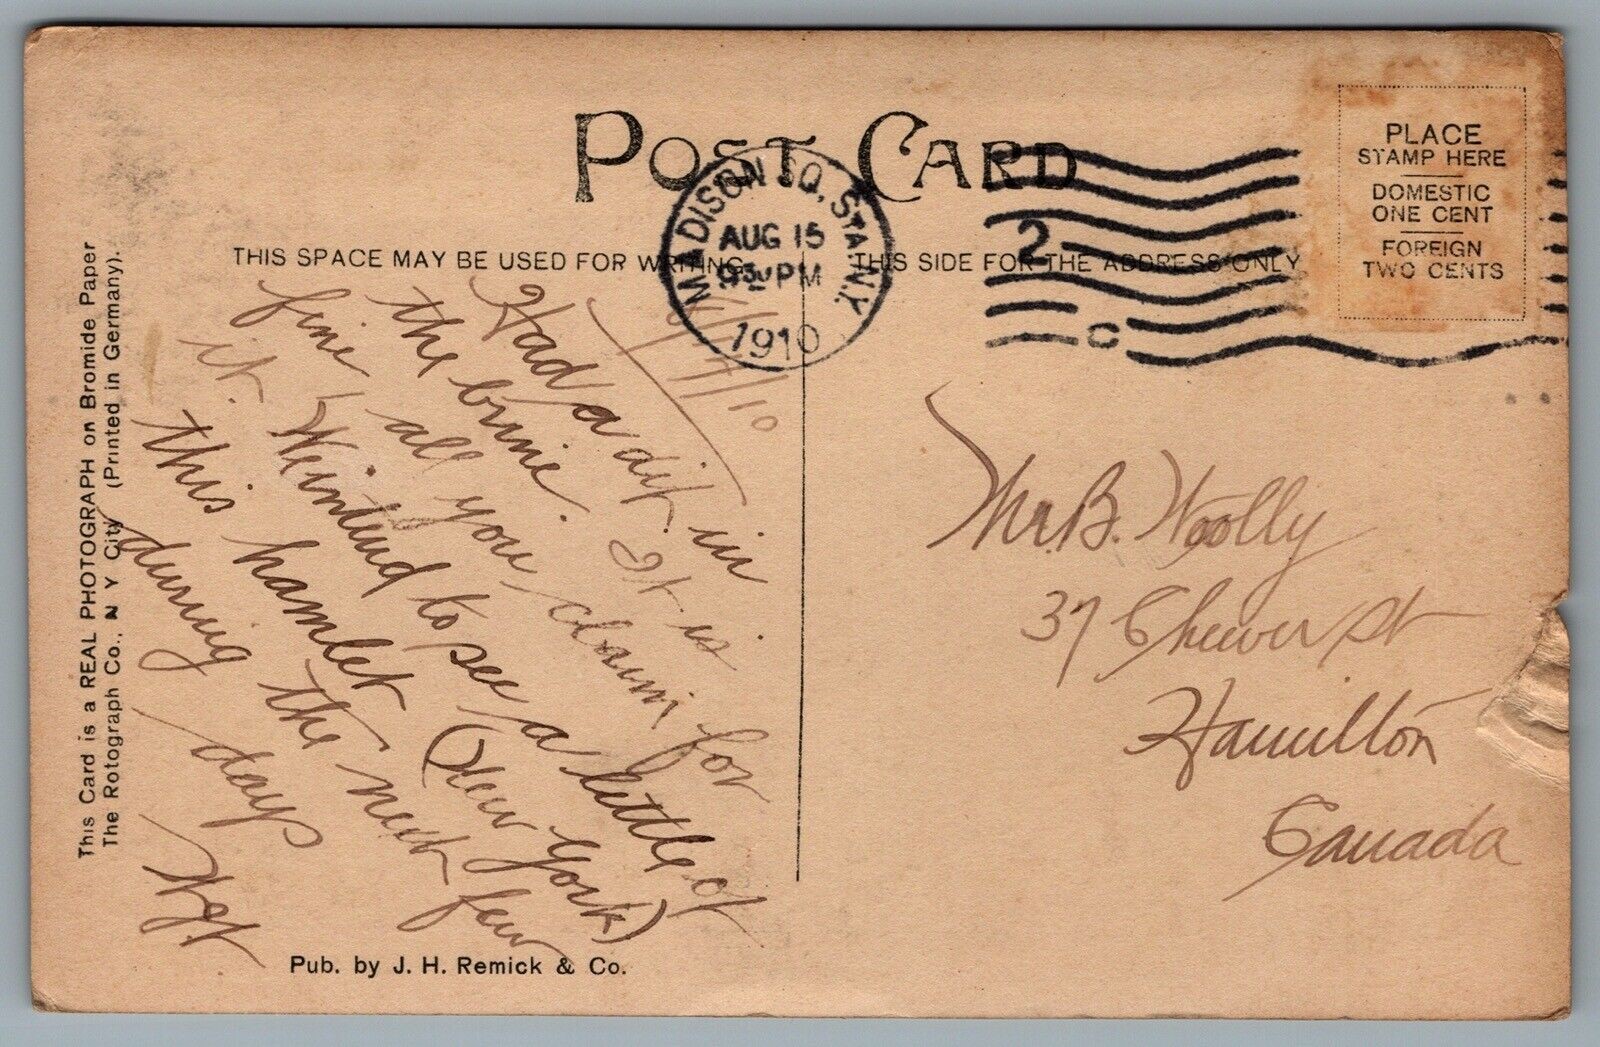 POST CARD
THIS SPACE MAY BE USED FOR WRITING
THIS SIDE FOR THE ADDRESS ONLY
PLACE
STAMP HERE
DOMESTIC
ONE CENT
FOREIGN
TWO CENTS
MADISON SQ. STA. N.Y.
AUG 15
930 PM
1910
2
C
8/14/10
Had a dip in
the brine. It is
fine, all you claim for
it. We intend to see a little of
this hamlet (New York)
during the next few
days
Mr. B. Woolly
37 St
Hamilton
Canada
This Card is a REAL PHOTOGRAPH on Bromide Paper
The Rotograph Co., N Y City (Printed in Germany).
Pub. by J. H. Remick & Co.